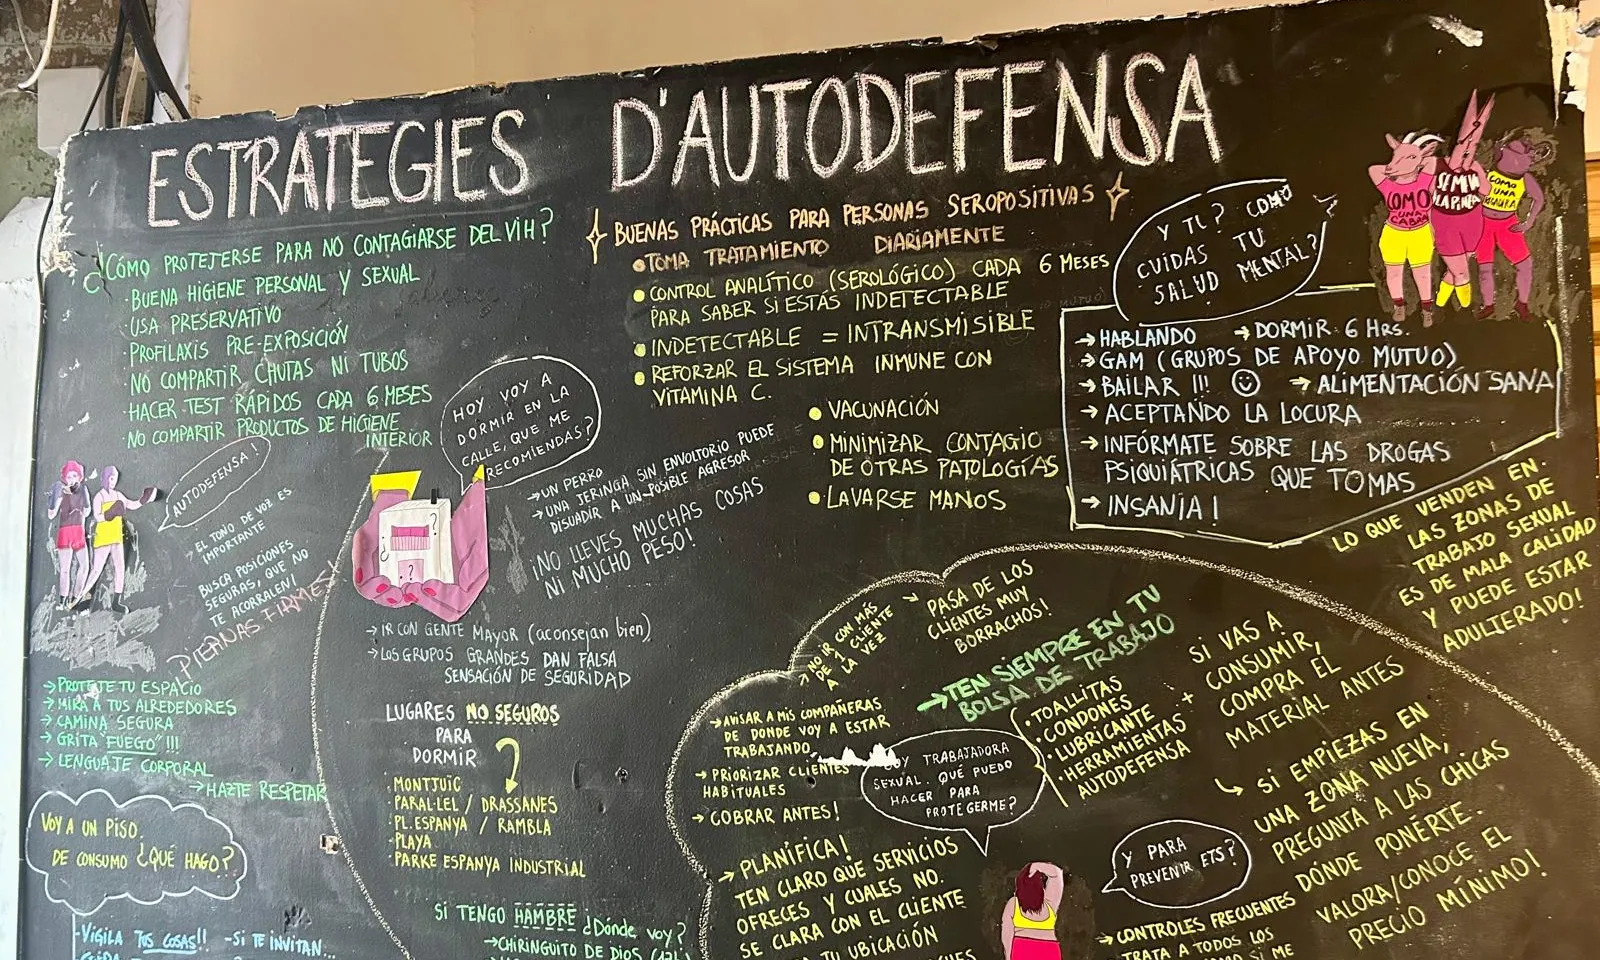 ESTRATEGIES D'AUTODEFENSA
¿CÓMO PROTEJERSE PARA NO CONTAGIARSE DEL VIH?
· BUENA HIGIENE PERSONAL Y SEXUAL
· USA PRESERVATIVO
· PROFILAXIS PRE-EXPOSICIÓN
· NO COMPARTIR CHUTAS NI TUBOS
· HACER TEST RÁPIDOS CADA 6 MESES
· NO COMPARTIR PRODUCTOS DE HIGIENE
INTERIOR
BUENAS PRÁCTICAS PARA PERSONAS SEROPOSITIVAS
• TOMA TRATAMIENTO DIARIAMENTE
• CONTROL ANALÍTICO (SEROLÓGICO) CADA 6 MESES
PARA SABER SI ESTÁS INDETECTABLE
• INDETECTABLE = INTRANSMISIBLE
• REFORZAR EL SISTEMA INMUNE CON
VITAMINA C.
• VACUNACIÓN
• MINIMIZAR CONTAGIO
DE OTRAS PATOLOGÍAS
• LAVARSE MANOS
Y TÚ? COMO
CUIDAS TU
SALUD MENTAL?
COMO
UNA
CABRA
COMO
UNA
→ HABLANDO → DORMIR 6 Hrs.
→ GAM (GRUPOS DE APOYO MUTUO)
→ BAILAR !!! ☺ → ALIMENTACIÓN SANA
→ ACEPTANDO LA LOCURA
→ INFÓRMATE SOBRE LAS DROGAS
PSIQUIÁTRICAS QUE TOMAS
→ INSANIA!
AUTODEFENSA!
→ EL TONO DE VOZ ES
IMPORTANTE
BUSCA POSICIONES
SEGURAS, QUE NO
TE ACORRALEN!
¡PIERNAS FIRMES!
→ PROTEJE TU ESPACIO
→ MIRA A TUS ALREDEDORES
→ CAMINA SEGURA
→ GRITA "FUEGO"!!!
→ LENGUAJE CORPORAL
→ HAZTE RESPETAR
VOY A UN PISO
DE CONSUMO ¿QUÉ HAGO?
- VIGILA TUS COSAS!!
- SI TE INVITAN...
HOY VOY A
DORMIR EN LA
CALLE, QUE ME
RECOMIENDAS?
→ UN PERRO
→ UNA JERINGA SIN ENVOLTORIO PUEDE
DISUADIR A UN POSIBLE AGRESOR
¡NO LLEVES MUCHAS COSAS
NI MUCHO PESO!
→ IR CON GENTE MAYOR (aconsejan bien)
→ LOS GRUPOS GRANDES DAN FALSA
SENSACIÓN DE SEGURIDAD
LUGARES NO SEGUROS
PARA
DORMIR
· MONTJUÏC
· PARAL·LEL / DRASSANES
· PL. ESPANYA / RAMBLA
· PLAYA
· PARKE ESPANYA INDUSTRIAL
SI TENGO HAMBRE ¿Dónde voy?
→ CHIRINGUITO DE DIOS
→ NO IR CON MÁS
DE 1 CLIENTE
A LA VEZ
→ PASA DE LOS
CLIENTES MUY
BORRACHOS!
→ AVISAR A MIS COMPAÑERAS
DE DONDE VOY A ESTAR
TRABAJANDO
→ PRIORIZAR CLIENTES
HABITUALES
→ COBRAR ANTES!
→ PLANIFICA!
TEN CLARO QUÉ SERVICIOS
OFRECES Y CUALES NO.
SE CLARA CON EL CLIENTE
TU UBICACIÓN
TRABAJADORA
SEXUAL. QUÉ PUEDO
HACER PARA
PROTEGERME?
→ TEN SIEMPRE EN TU
BOLSA DE TRABAJO
· TOALLITAS
· CONDONES
· LUBRICANTE
· HERRAMIENTAS
AUTODEFENSA
+ SI VAS A
CONSUMIR,
COMPRA EL
MATERIAL ANTES
LO QUE VENDEN EN
LAS ZONAS DE
TRABAJO SEXUAL
ES DE MALA CALIDAD
Y PUEDE ESTAR
ADULTERADO!
SI EMPIEZAS EN
UNA ZONA NUEVA,
PREGUNTA A LAS CHICAS
DÓNDE PONERTE.
VALORA/CONOCE EL
PRECIO MÍNIMO!
Y PARA
PREVENIR ETS?
→ CONTROLES FRECUENTES
→ TRATA A TODOS LOS